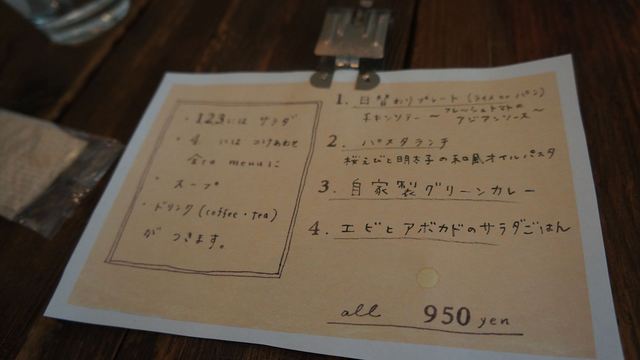 ・123には サラダ
・4 には つけあわせ
全ての menuに
・スープ
・ドリンク(coffee・tea)
がつきます。
1. 日替わりプレート(ライス or パン)
チキンソテー 〜フレッシュトマトの
アジアンソース〜
2. パスタランチ
桜えびと明太子の和風オイルパスタ
3. 自家製グリーンカレー
4. エビとアボカドのサラダごはん
all 950 yen